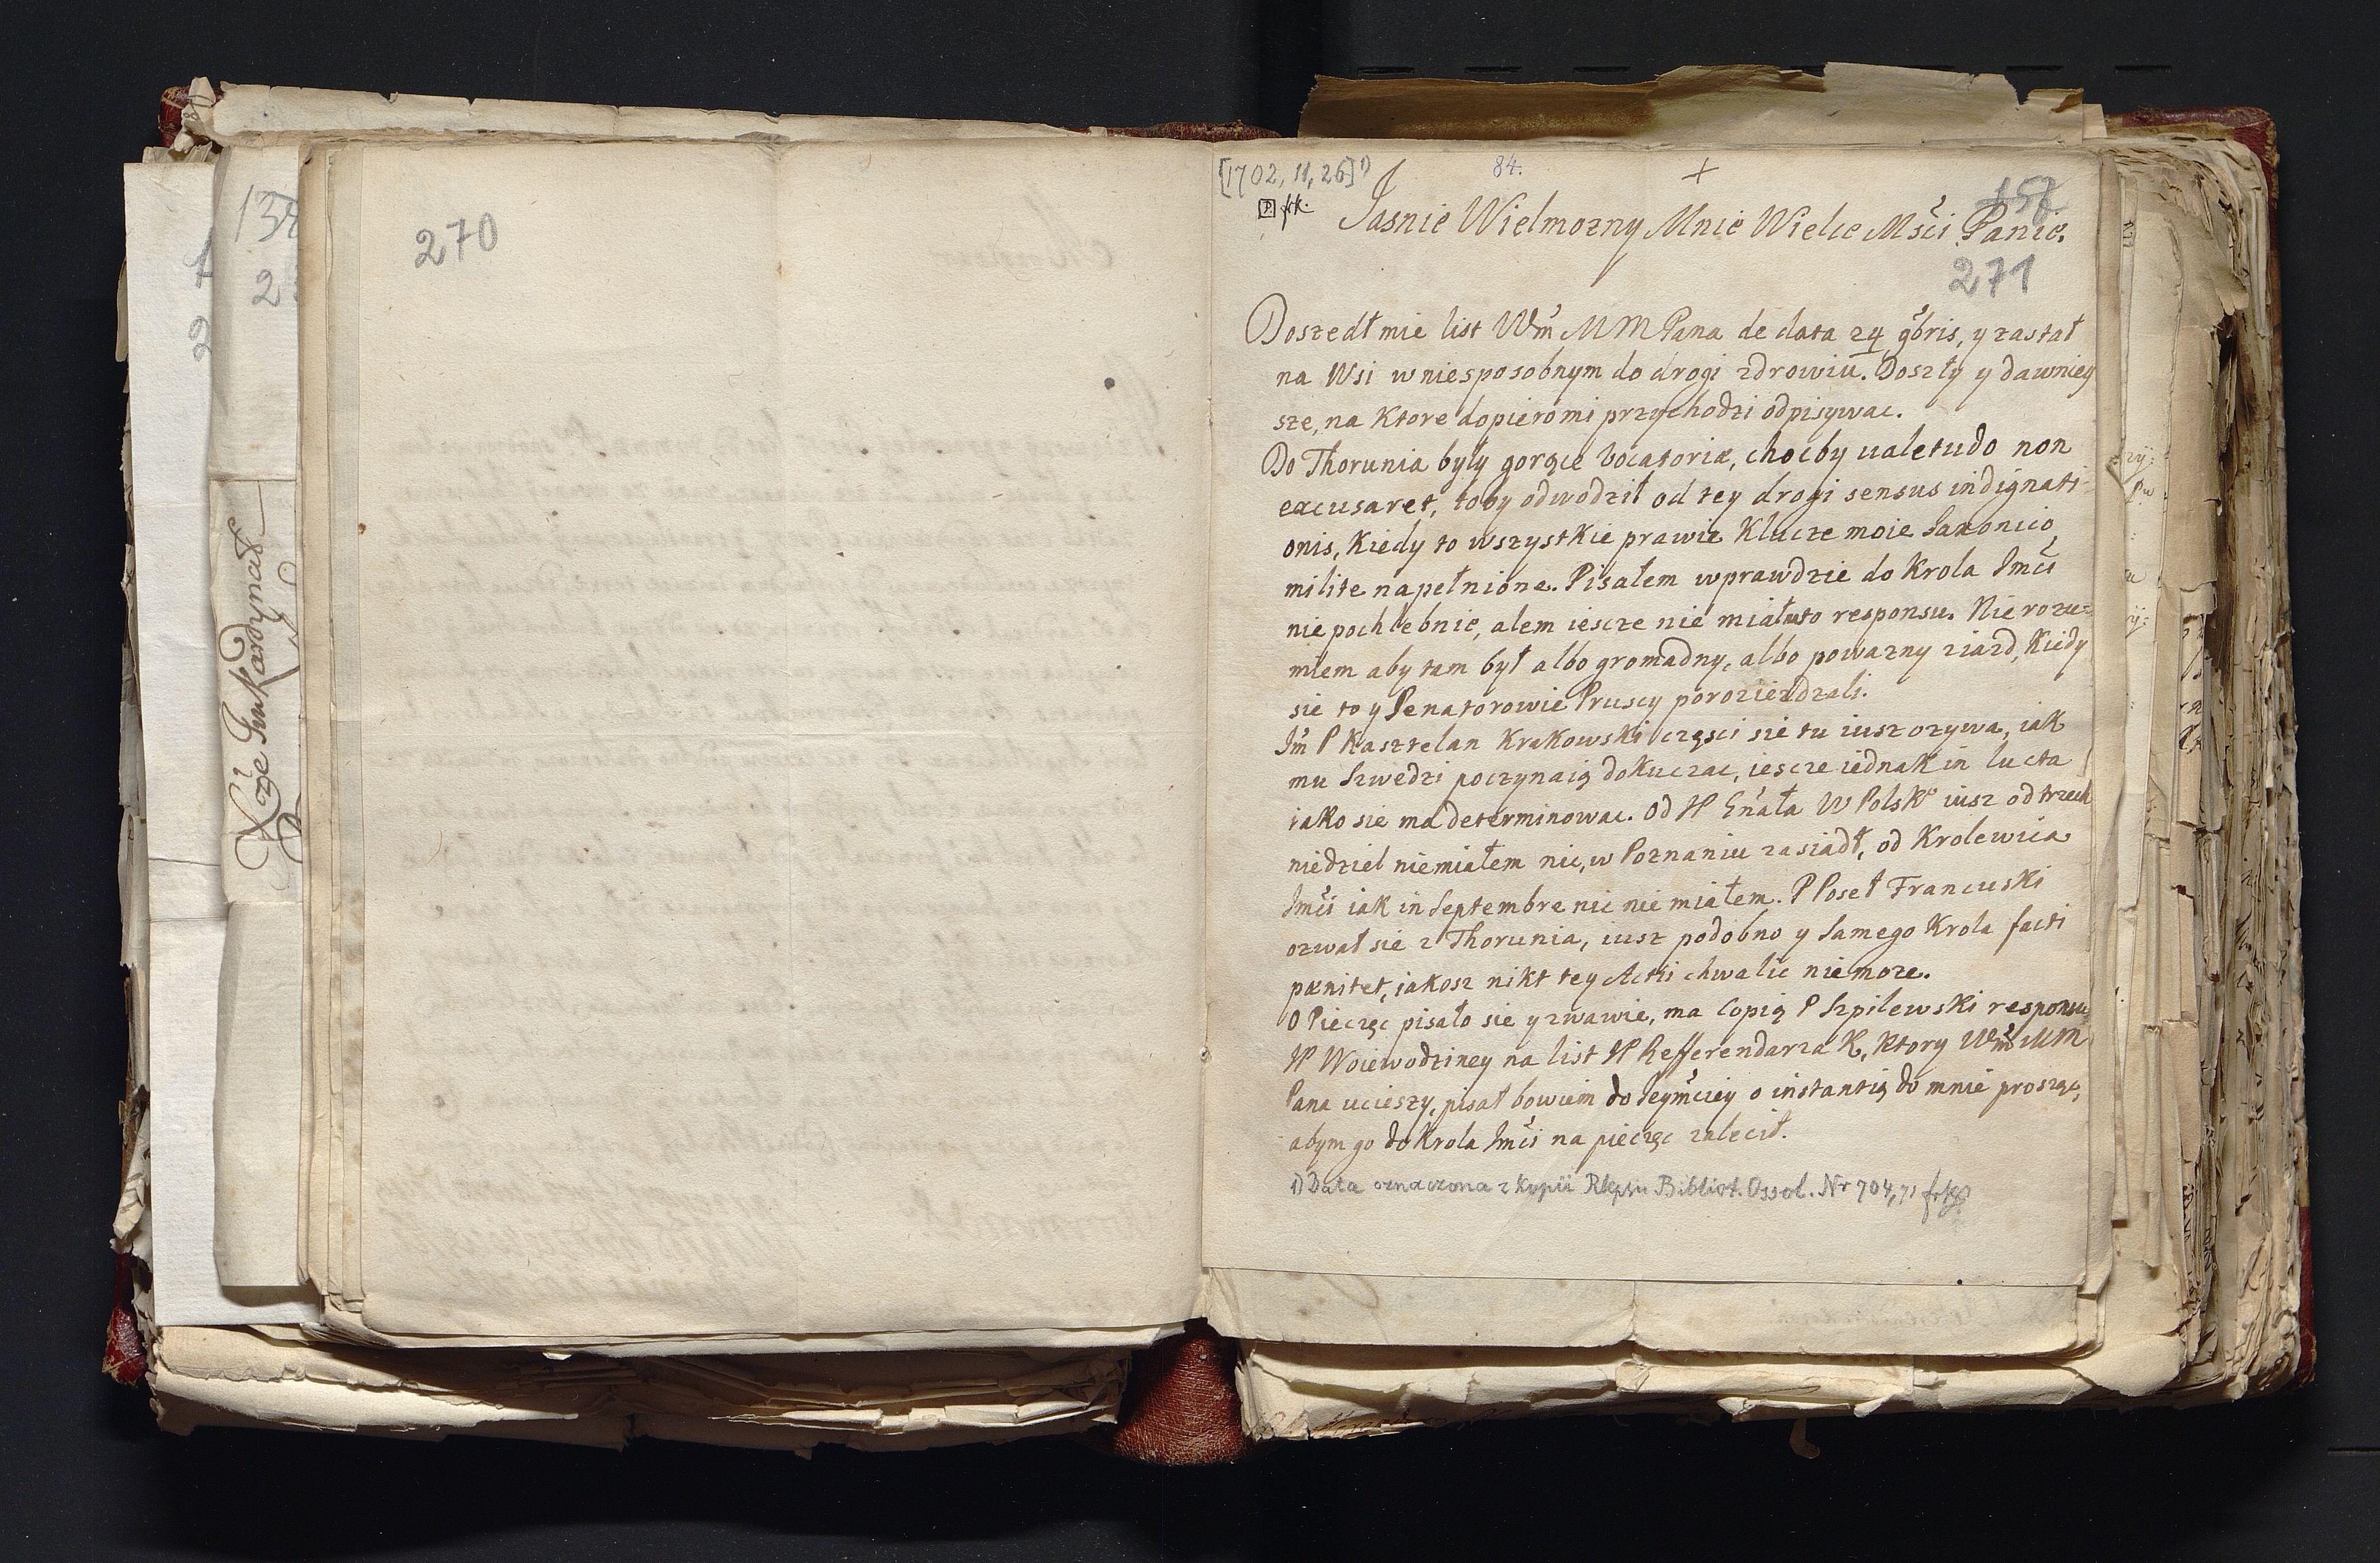 270
Xże Imć Kardynał
[1702, 11, 26] 1)
84.
+
P. frk.
157
Jasnie Wielmozny Mnie Wielce Mści Panie.
271
Doszedł mie list Wm̃ M M Pana de data 24 9bris, y zastał
na Wsi w niesposobnym do drogi zdrowiu. Doszły y dawniey
sze, na Ktore dopiero mi przychodzi odpisywac.
Do Thorunia były gorące Vocatoriæ, choćby ualetudo non
excusaret, toby odwodził od tey drogi sensus indignati-
onis, Kiedy to wszystkie prawie Klucze moie Saxonico
milite napełnione. Pisałem wprawdzie do Krola Jmći
nie pochlebnie, alem iescze nie miał na to responsu. Nie rozu=
miem aby tam był albo gromadny, albo powazny ziazd, Kiedy
sie to y Senatorowie Pruscy porozieżdzali.
Jm̃ P Kasztelan Krakowski częsci sie tu iusz ozywa, iak
mu Szwedzi poczynaią dokuczac, iescze iednak in lucta
iako sie ma determinowac. Od JP Gnała W Polsko iusz od trzech
niedziel niemiałem nic, w Poznaniu zasiadł, od Krolewica
Jmći iak in Septembre nic nie miałem. P Poseł Francuski
ozwał sie z Thorunia, iusz podobno y Samego Krola facti
pænitet, iakosz nikt tey Actii chwalic niemoze.
O Pieczęc pisało sie y zwawie, ma Copią P Szpilewski responsu
JP Woiewodziney na list JP Refferendarza K, Ktory Wm̃ M M
Pana ucieszy, pisał bowiem do Jeymciey o instantią do mnie prosząc,
abym go do Krola Jmći na pieczęc zalecił.
1) Data oznaczona z kopii Rkpsu Bibliot. Ossol. Nr 704,71 frk